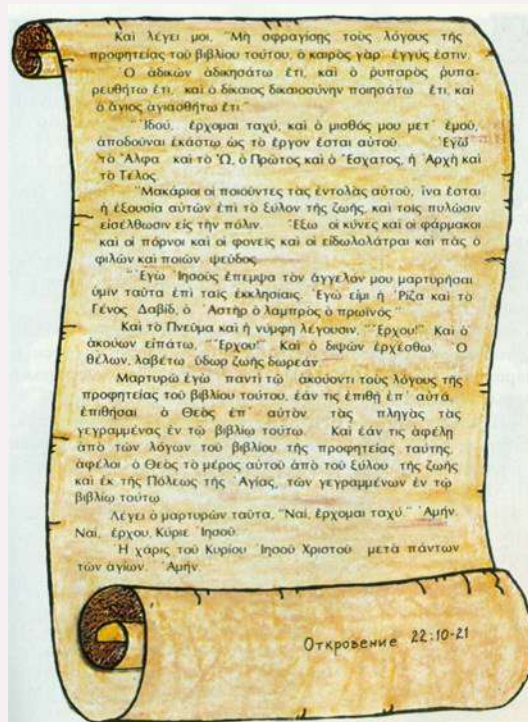 Καὶ λέγει μοι, "Μὴ σφραγίσῃς τοὺς λόγους τῆς
προφητείας τοῦ βιβλίου τούτου, ὁ καιρὸς γὰρ ἐγγύς ἐστιν.
Ὁ ἀδικῶν ἀδικησάτω ἔτι, καὶ ὁ ῥυπαρὸς ῥυπα-
ρευθήτω ἔτι, καὶ ὁ δίκαιος δικαιοσύνην ποιησάτω ἔτι, καὶ
ὁ ἅγιος ἁγιασθήτω ἔτι."
"Ἰδού, ἔρχομαι ταχύ, καὶ ὁ μισθός μου μετ' ἐμοῦ,
ἀποδοῦναι ἑκάστῳ ὡς τὸ ἔργον ἔσται αὐτοῦ. Ἐγὼ
τὸ Ἄλφα καὶ τὸ Ὦ, ὁ Πρῶτος καὶ ὁ Ἔσχατος, ἡ Ἀρχὴ καὶ
τὸ Τέλος.
"Μακάριοι οἱ ποιοῦντες τὰς ἐντολὰς αὐτοῦ, ἵνα ἔσται
ἡ ἐξουσία αὐτῶν ἐπὶ τὸ ξύλον τῆς ζωῆς, καὶ τοῖς πυλῶσιν
εἰσέλθωσιν εἰς τὴν πόλιν. Ἔξω οἱ κύνες καὶ οἱ φάρμακοι
καὶ οἱ πόρνοι καὶ οἱ φονεῖς καὶ οἱ εἰδωλολάτραι καὶ πᾶς ὁ
φιλῶν καὶ ποιῶν ψεῦδος.
"Ἐγὼ Ἰησοῦς ἔπεμψα τὸν ἄγγελόν μου μαρτυρῆσαι
ὑμῖν ταῦτα ἐπὶ ταῖς ἐκκλησίαις. Ἐγώ εἰμι ἡ Ῥίζα καὶ τὸ
Γένος Δαβίδ, ὁ Ἀστὴρ ὁ λαμπρὸς ὁ πρωϊνός."
Καὶ τὸ Πνεῦμα καὶ ἡ νύμφη λέγουσιν, "Ἔρχου!" Καὶ ὁ
ἀκούων εἰπάτω, "Ἔρχου!" Καὶ ὁ διψῶν ἐρχέσθω. Ὁ
θέλων, λαβέτω ὕδωρ ζωῆς δωρεάν.
Μαρτυρῶ ἐγὼ παντὶ τῷ ἀκούοντι τοὺς λόγους τῆς
προφητείας τοῦ βιβλίου τούτου, ἐάν τις ἐπιθῇ ἐπ' αὐτά,
ἐπιθήσαι ὁ Θεὸς ἐπ' αὐτὸν τὰς πληγὰς τὰς
γεγραμμένας ἐν τῷ βιβλίῳ τούτῳ. Καὶ ἐάν τις ἀφέλῃ
ἀπὸ τῶν λόγων τοῦ βιβλίου τῆς προφητείας ταύτης,
ἀφέλοι ὁ Θεὸς τὸ μέρος αὐτοῦ ἀπὸ τοῦ ξύλου τῆς ζωῆς
καὶ ἐκ τῆς Πόλεως τῆς Ἁγίας, τῶν γεγραμμένων ἐν τῷ
βιβλίῳ τούτῳ.
Λέγει ὁ μαρτυρῶν ταῦτα, "Ναί, ἔρχομαι ταχύ." Ἀμήν.
Ναί, ἔρχου, Κύριε Ἰησοῦ.
Ἡ χάρις τοῦ Κυρίου Ἰησοῦ Χριστοῦ μετὰ πάντων
τῶν ἁγίων. Ἀμήν.
Откровение 22:10-21